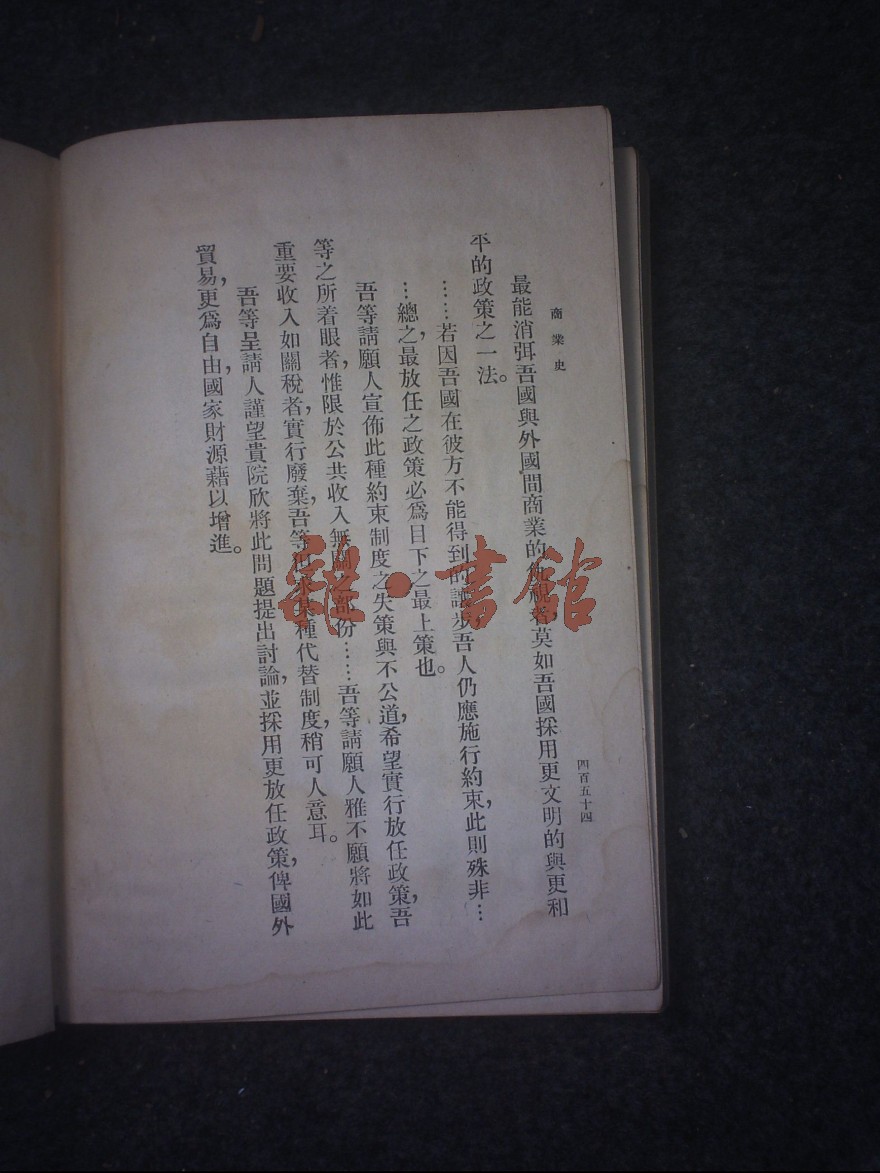 商業史
四百五十四
最能消弭吾國與外國間商業的仇視者，莫如吾國採用更文明的與更和
平的政策之一法。
……若因吾國在彼方不能得到的讓步，吾人仍應施行約束，此則殊非…
…總之，最放任之政策必爲目下之最上策也。
吾等請願人宣佈此種約束制度之失策與不公道，希望實行放任政策，吾
等之所着眼者，惟限於公共收入無關之部份……吾等請願人雅不願將如此
重要收入如關稅者，實行廢棄，吾等但求某種代替制度，稍可人意耳。
吾等呈請人謹望貴院欣將此問題提出討論，並採用更放任政策，俾國外
貿易，更爲自由，國家財源藉以增進。
書館